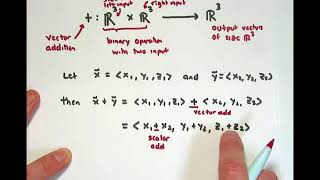 left input right input
+ : ℝ³ × ℝ³ → ℝ³
vector addition
binary operation with two input
output vectors of size ℝ³
Let x⃗ = <x₁, y₁, z₁> and y⃗ = <x₂, y₂, z₂>
then x⃗ + y⃗ = <x₁, y₁, z₁> + <x₂, y₂, z₂>
vector add
= <x₁ + x₂, y₁ + y₂, z₁ + z₂>
scalar add